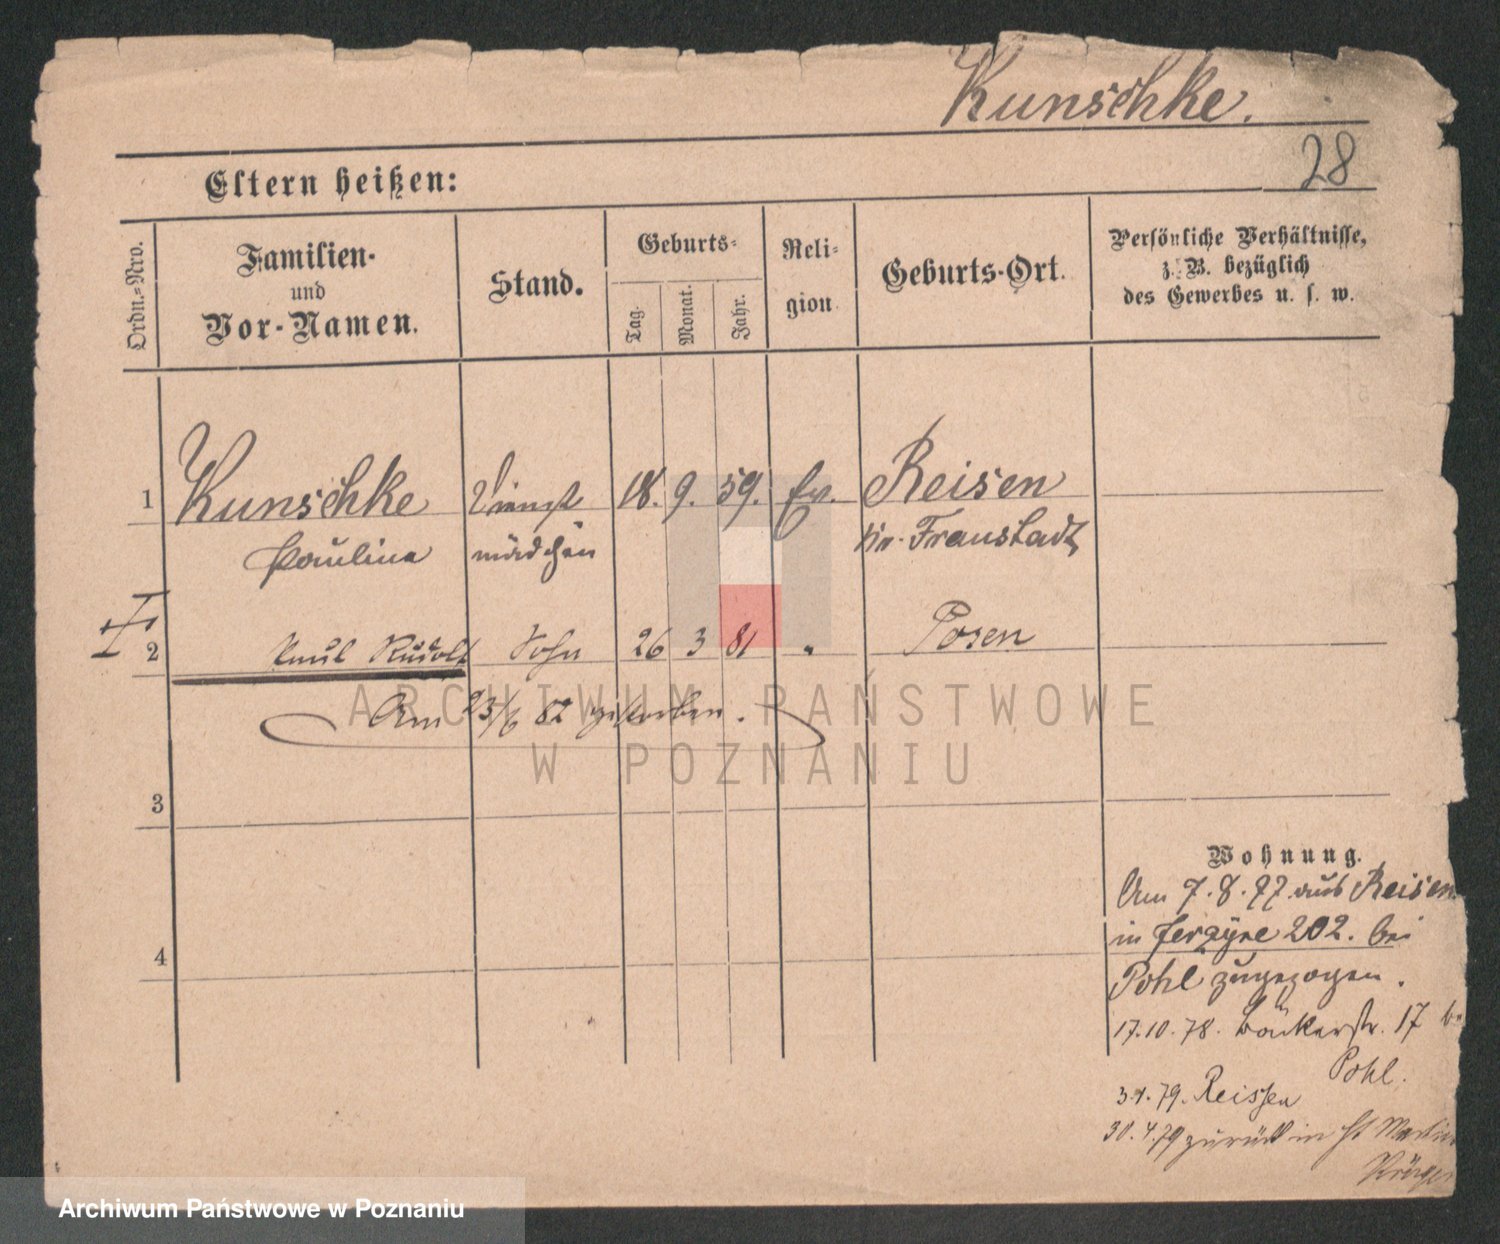 Kunschke.
28
Eltern heißen:
Ordn.-Nro.
Familien-
und
Vor-Namen.
Stand.
Geburts-
Tag.
Monat.
Jahr.
Reli-
gion
Geburts-Ort.
Persönliche Verhältnisse,
z. B. bezüglich
des Gewerbes u. s. w.
1 Kunschke Dienst 18. 9. 59. Ev. Reisen
Pauline mädchen Kr. Fraustadt
2 Paul Rudolf Sohn 26 3 81 " Posen
Am 23/6 82 gestorben.
3
4
Wohnung.
Am 7.8.77 aus Reisen
in Jerzyce 202. bei
Pohl zugezogen.
17.10.78. Bäckerstr. 17 b
Pohl.
79. Reissen
30.4.79 zurück in St Martin
ARCHIWUM PAŃSTWOWE
W POZNANIU
Archiwum Państwowe w Poznaniu